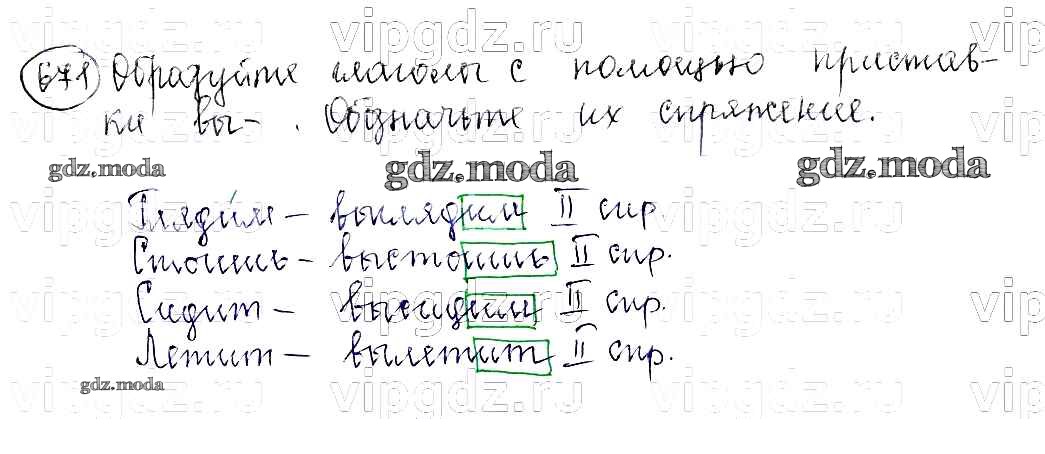 vipgdz.ru vipgdz.ru vipgdz.ru vip
671 Образуйте глаголы с помощью пристав-
ки вы- . Обозначьте их спряжение.
gdz.moda gdz.moda gdz.moda
Глядим – выглядим II спр.
Стоишь – выстоишь II спр.
Сидит – высидит II спр.
Летит – вылетит II спр.
gdz.moda
vipgdz.ru vipgdz.ru vipgdz.ru vip